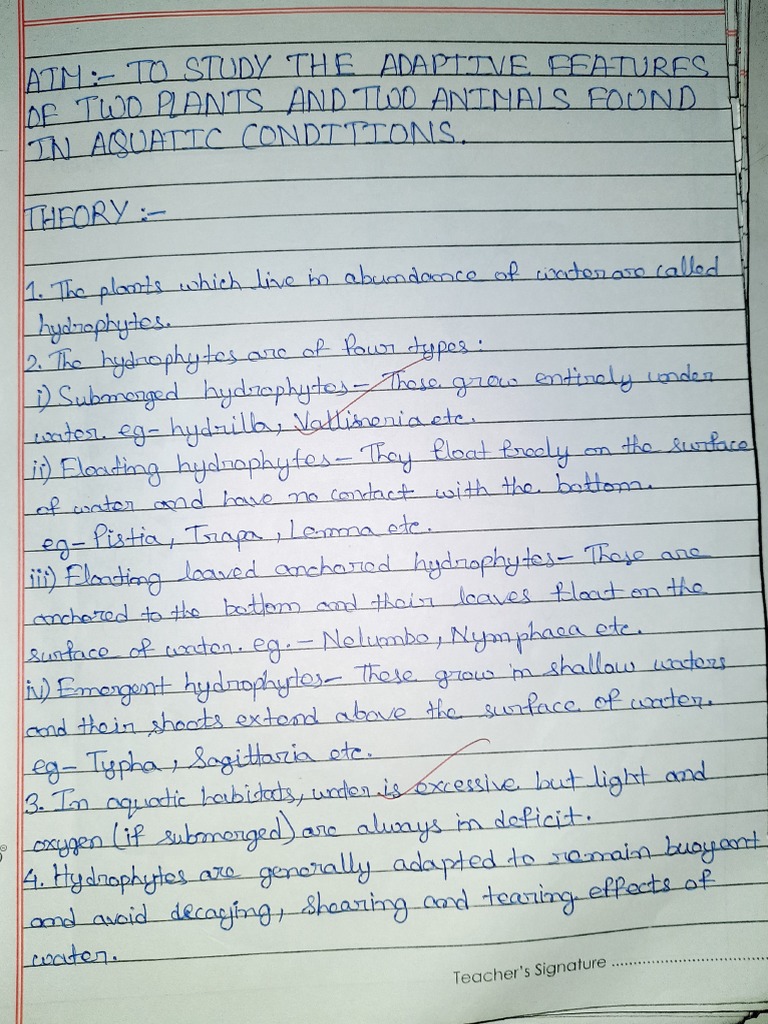 AIM:- TO STUDY THE ADAPTIVE FEATURES
OF TWO PLANTS AND TWO ANIMALS FOUND
IN AQUATIC CONDITIONS.
THEORY :-
1. The plants which live in abundance of water are called
hydrophytes.
2. The hydrophytes are of four types:
i) Submerged hydrophytes- These grow entirely under
water. eg- hydrilla, Vallisneria etc.
ii) Floating hydrophytes- They float freely on the surface
of water and have no contact with the bottom.
eg- Pistia, Trapa, Lemma etc.
iii) Floating leaved anchored hydrophytes- These are
anchored to the bottom and their leaves float on the
surface of water. eg. - Nelumbo, Nymphaea etc.
iv) Emergent hydrophytes- These grow in shallow waters
and their shoots extend above the surface of water.
eg- Typha, Sagittaria etc.
3. In aquatic habitats, water is excessive but light and
oxygen (if submerged) are always in deficit.
4. Hydrophytes are generally adapted to remain buoyant
and avoid decaying, shearing and tearing effects of
water.
Teacher's Signature ..............................